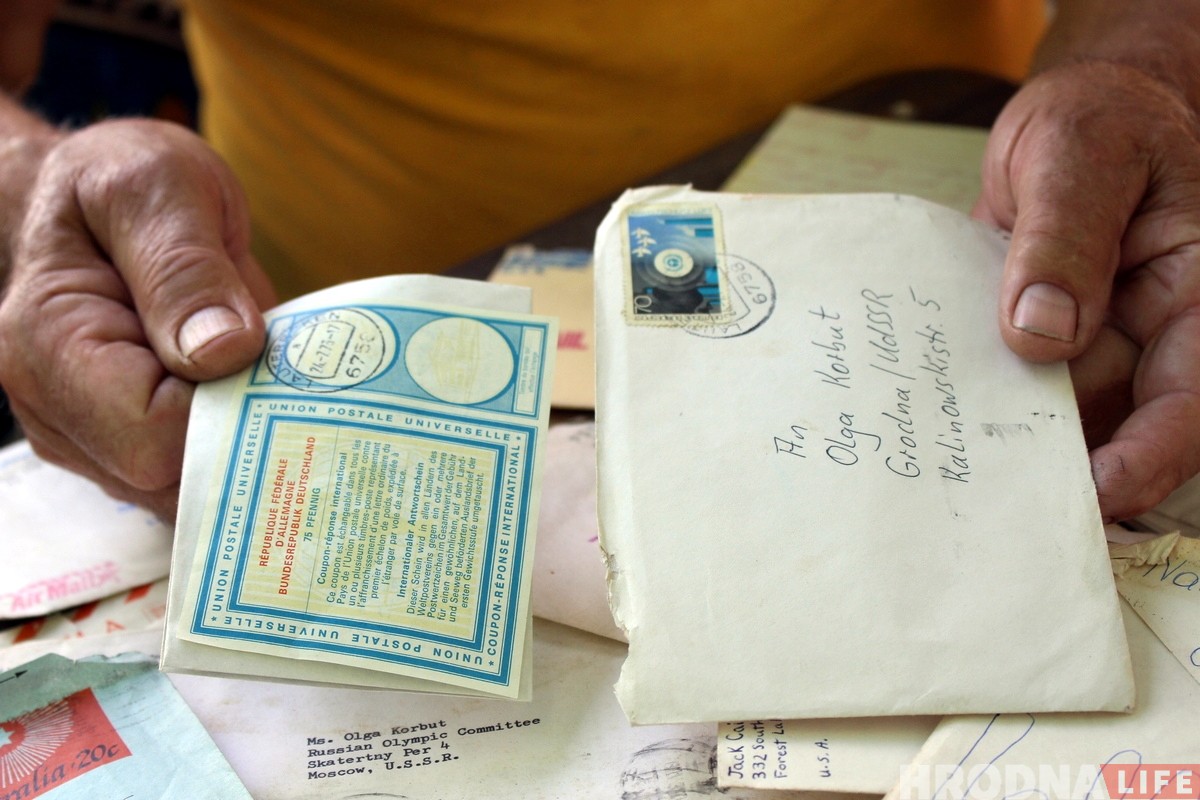 24.7.73-17
6750
UNION POSTALE UNIVERSELLE
UNION POSTALE UNIVERSELLE
UNION POSTALE UNIVERSELLE
COUPON-RÉPONSE INTERNATIONAL
RÉPUBLIQUE FÉDÉRALE
D'ALLEMAGNE
BUNDESREPUBLIK DEUTSCHLAND
75 PFENNIG
Coupon-réponse international
Ce coupon est échangeable dans tous les
Pays de l'Union postale universelle contre
un ou plusieurs timbres-poste représentant
l'affranchissement d'une lettre ordinaire du
premier échelon de poids, expédiée à
l'étranger par voie de surface.
Internationaler Antwortschein
Dieser Schein wird in allen Ländern des
Weltpostvereins gegen ein oder mehrere
Postwertzeichen im Gesamtwert der Gebühr
für einen gewöhnlichen, auf dem Land-
und Seeweg beförderten Auslandsbrief der
ersten Gewichtsstufe umgetauscht.
70
6750
An
Olga Korbut
Grodna/UdSSR
Kalinowskistr. 5
Air Mail
20c
Ms. Olga Korbut
Russian Olympic Committee
Skatertny Per 4
Moscow, U.S.S.R.
Jack
332 South
Forest
U.S.A.
HRODNA LIFE